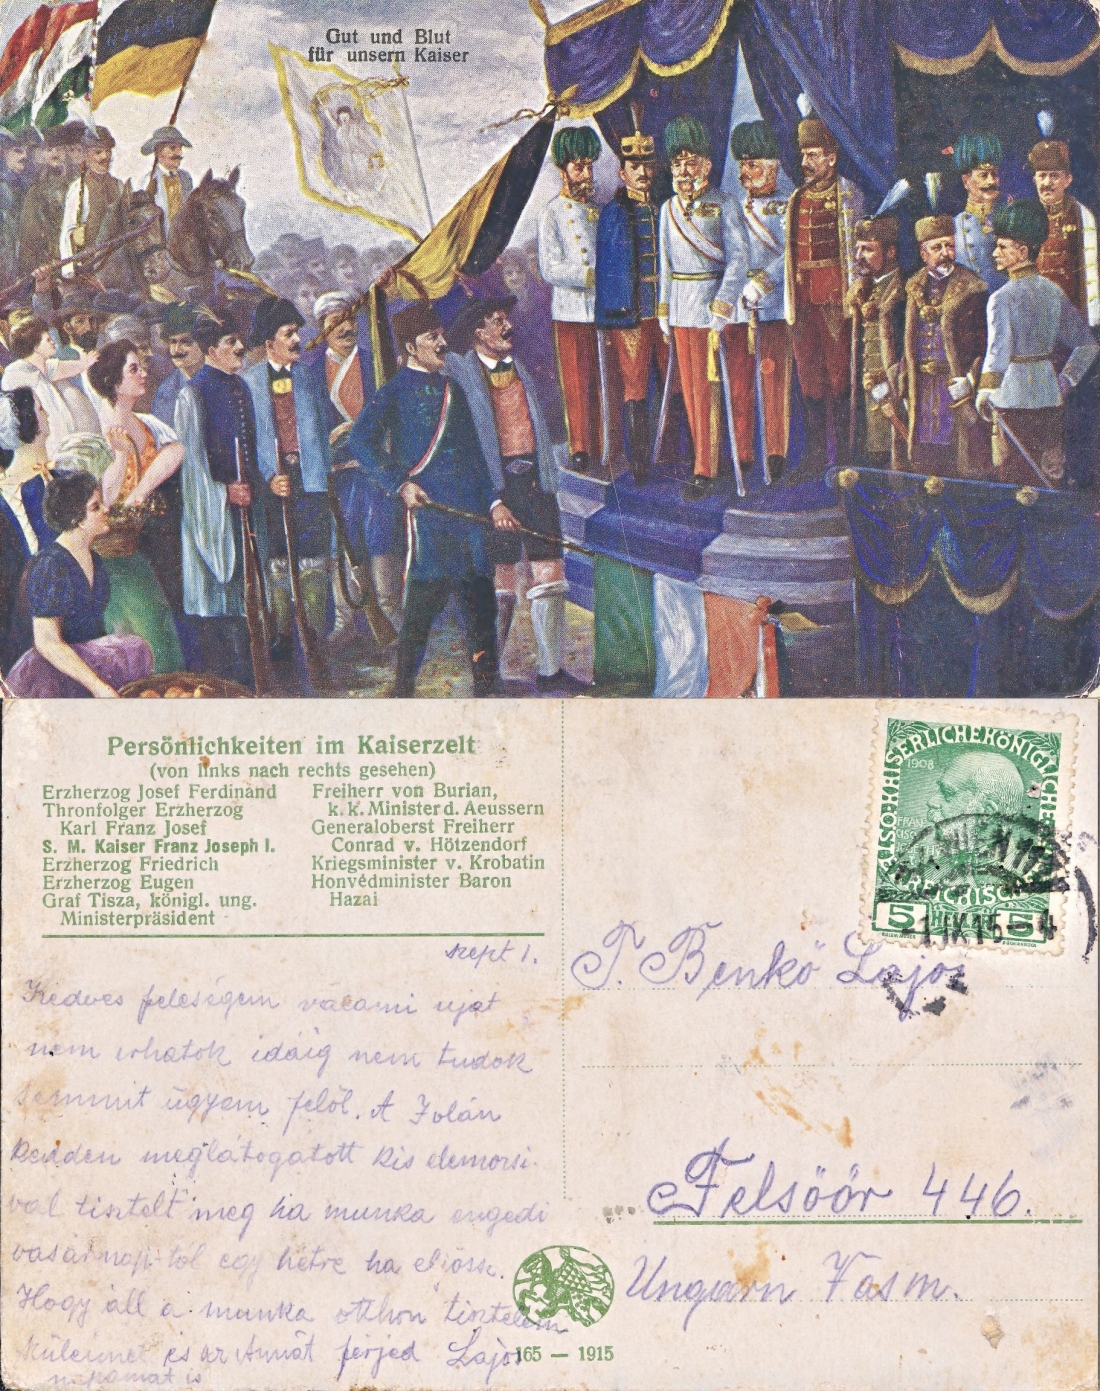 Gut und Blut
für unsern Kaiser
Persönlichkeiten im Kaiserzelt
(von links nach rechts gesehen)
Erzherzog Josef Ferdinand
Thronfolger Erzherzog
Karl Franz Josef
S. M. Kaiser Franz Joseph I.
Erzherzog Friedrich
Erzherzog Eugen
Graf Tisza, königl. ung.
Ministerpräsident
Freiherr von Burian,
k. k. Minister d. Aeussern
Generaloberst Freiherr
Conrad v. Hötzendorf
Kriegsminister v. Krobatin
Honvédminister Baron
Hazai
KAISERLICHE KÖNIGLICHE
1908
5 5
WIEN
1.IX.15-4
szept 1.
Kedves feleségem valami ujat
nem irhatok idáig nem tudok
semmit ügyem felöl. A Jolán
kedden meglátogatott kis
val tisztelt meg ha munka engedi
vasárnap-tól egy hétre ha eljössz.
Hogy áll a munka otthon tisztelem
és az Annát férjed Lajos
is
T. Benkö Lajos
Felsöör 446.
Ungarn Vasm.
165 — 1915